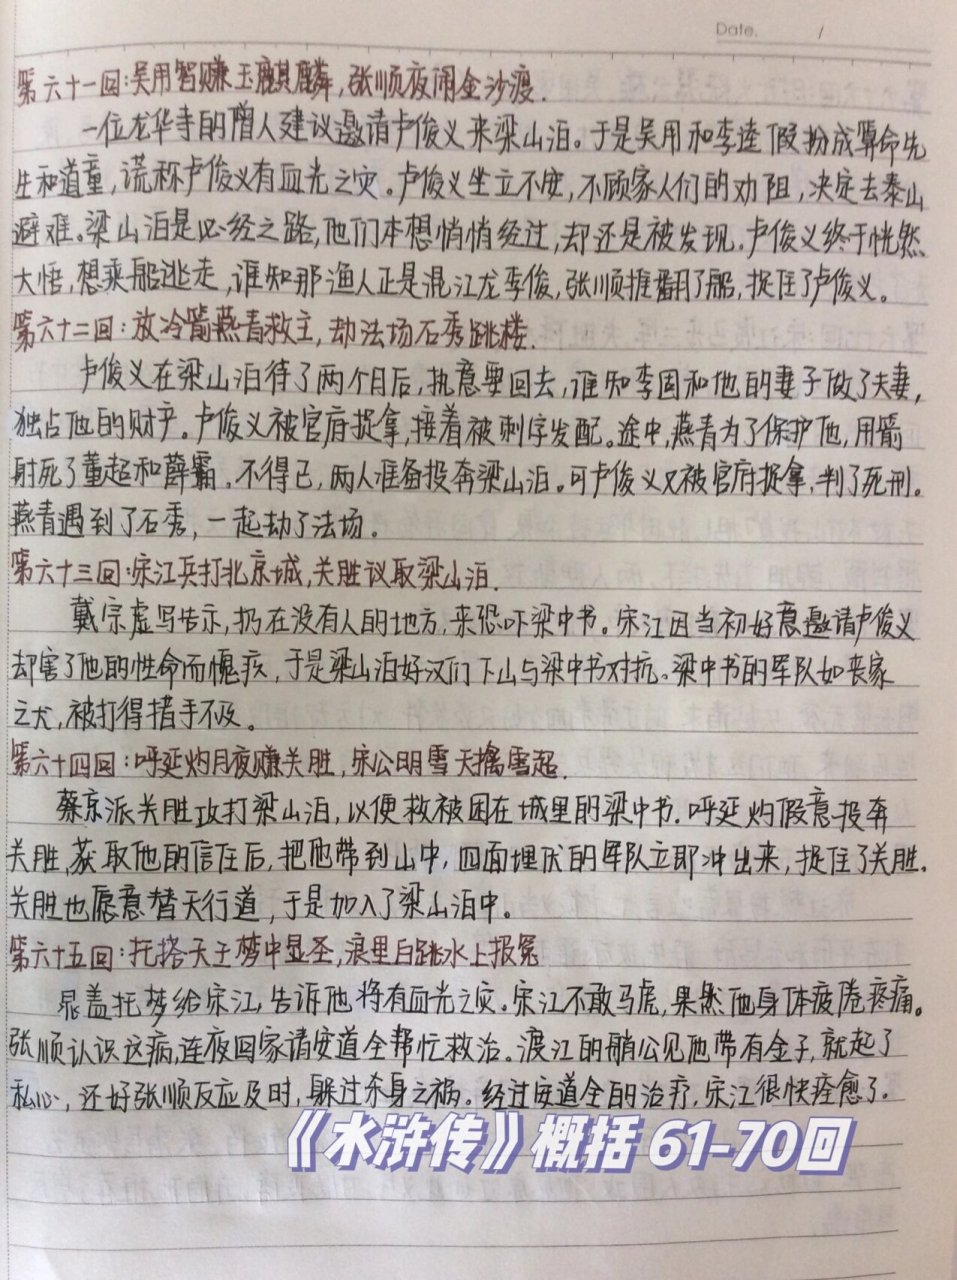 Date. /
第六十一回:吴用智赚玉麒麟,张顺夜闹金沙渡.
一位龙华寺的僧人建议邀请卢俊义来梁山泊。于是吴用和李逵假扮成算命先
生和道童,谎称卢俊义有血光之灾。卢俊义坐立不安,不顾家人们的劝阻,决定去泰山
避难。梁山泊是必经之路,他们本想悄悄经过,却还是被发现。卢俊义终于恍然
大悟,想乘船逃走,谁知那渔人正是混江龙李俊,张顺推翻了船,捉住了卢俊义。
第六十二回:放冷箭燕青救主,劫法场石秀跳楼.
卢俊义在梁山泊待了两个月后,执意要回去,谁知李固和他的妻子做了夫妻,
独占他的财产。卢俊义被官府捉拿,接着被刺字发配。途中,燕青为了保护他,用箭
射死了董超和薛霸。不得已,两人准备投奔梁山泊。可卢俊义又被官府捉拿,判了死刑。
燕青遇到了石秀,一起劫了法场。
第六十三回:宋江兵打北京城,关胜议取梁山泊.
戴宗虚写告示,扔在没有人的地方,来恐吓梁中书。宋江因当初好意邀请卢俊义
却害了他的性命而愧疚,于是梁山泊好汉们下山与梁中书对抗。梁中书的军队如丧家
之犬,被打得措手不及。
第六十四回:呼延灼月夜赚关胜,宋公明雪天擒雪超.
蔡京派关胜攻打梁山泊,以便救被困在城里的梁中书。呼延灼假意投奔
关胜,获取他的信任后,把他带到山中,四面埋伏的军队立即冲出来,捉住了关胜。
关胜也愿意替天行道,于是加入了梁山泊中。
第六十五回:托塔天王梦中显圣,浪里白跳水上报冤
晁盖托梦给宋江,告诉他将有血光之灾。宋江不敢马虎,果然他身体疲倦疼痛。
张顺认识这病,连夜回家请安道全帮忙救治。渡江的艄公见他带有金子,就起了
私心,还好张顺反应及时,躲过杀身之祸。经过安道全的治疗,宋江很快痊愈了.
《水浒传》概括 61-70回